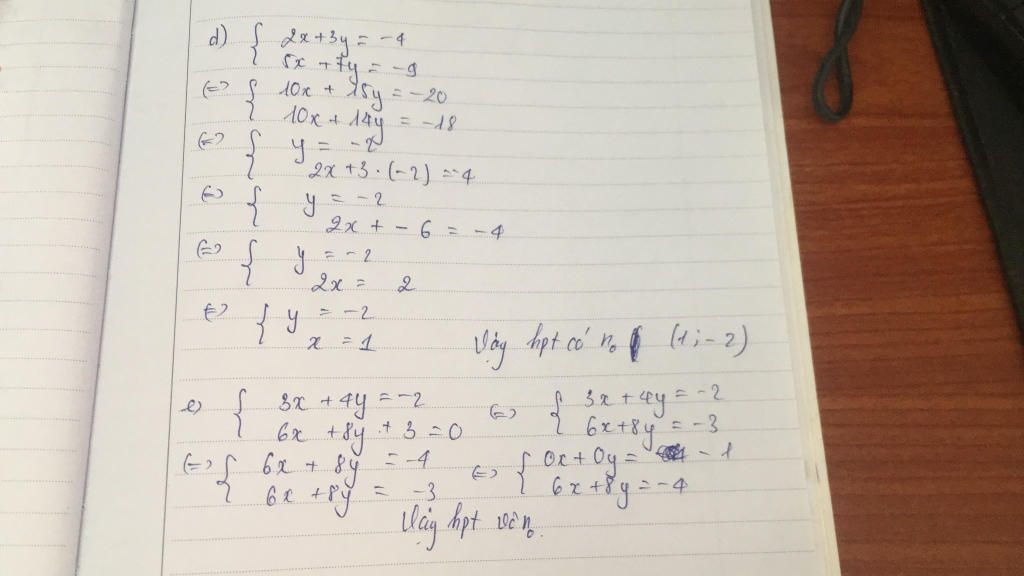 d) { 2x+3y = -4
5x +7y = -9
(=) { 10x + 15y = -20
10x + 14y = -18
(=) { y = -2
2x+3·(-2) = -4
(=) { y = -2
2x + - 6 = -4
(=) { y = -2
2x = 2
(=) { y = -2
x = 1 Vậy hpt có n₀ (1;-2)
e) { 3x + 4y = -2 (=) { 3x + 4y = -2
6x +8y + 3 = 0 6x+8y = -3
(=) { 6x + 8y = -4 (=) { 0x+0y = -1
6x +8y = -3 6x+8y = -4
Vậy hpt vô n₀.